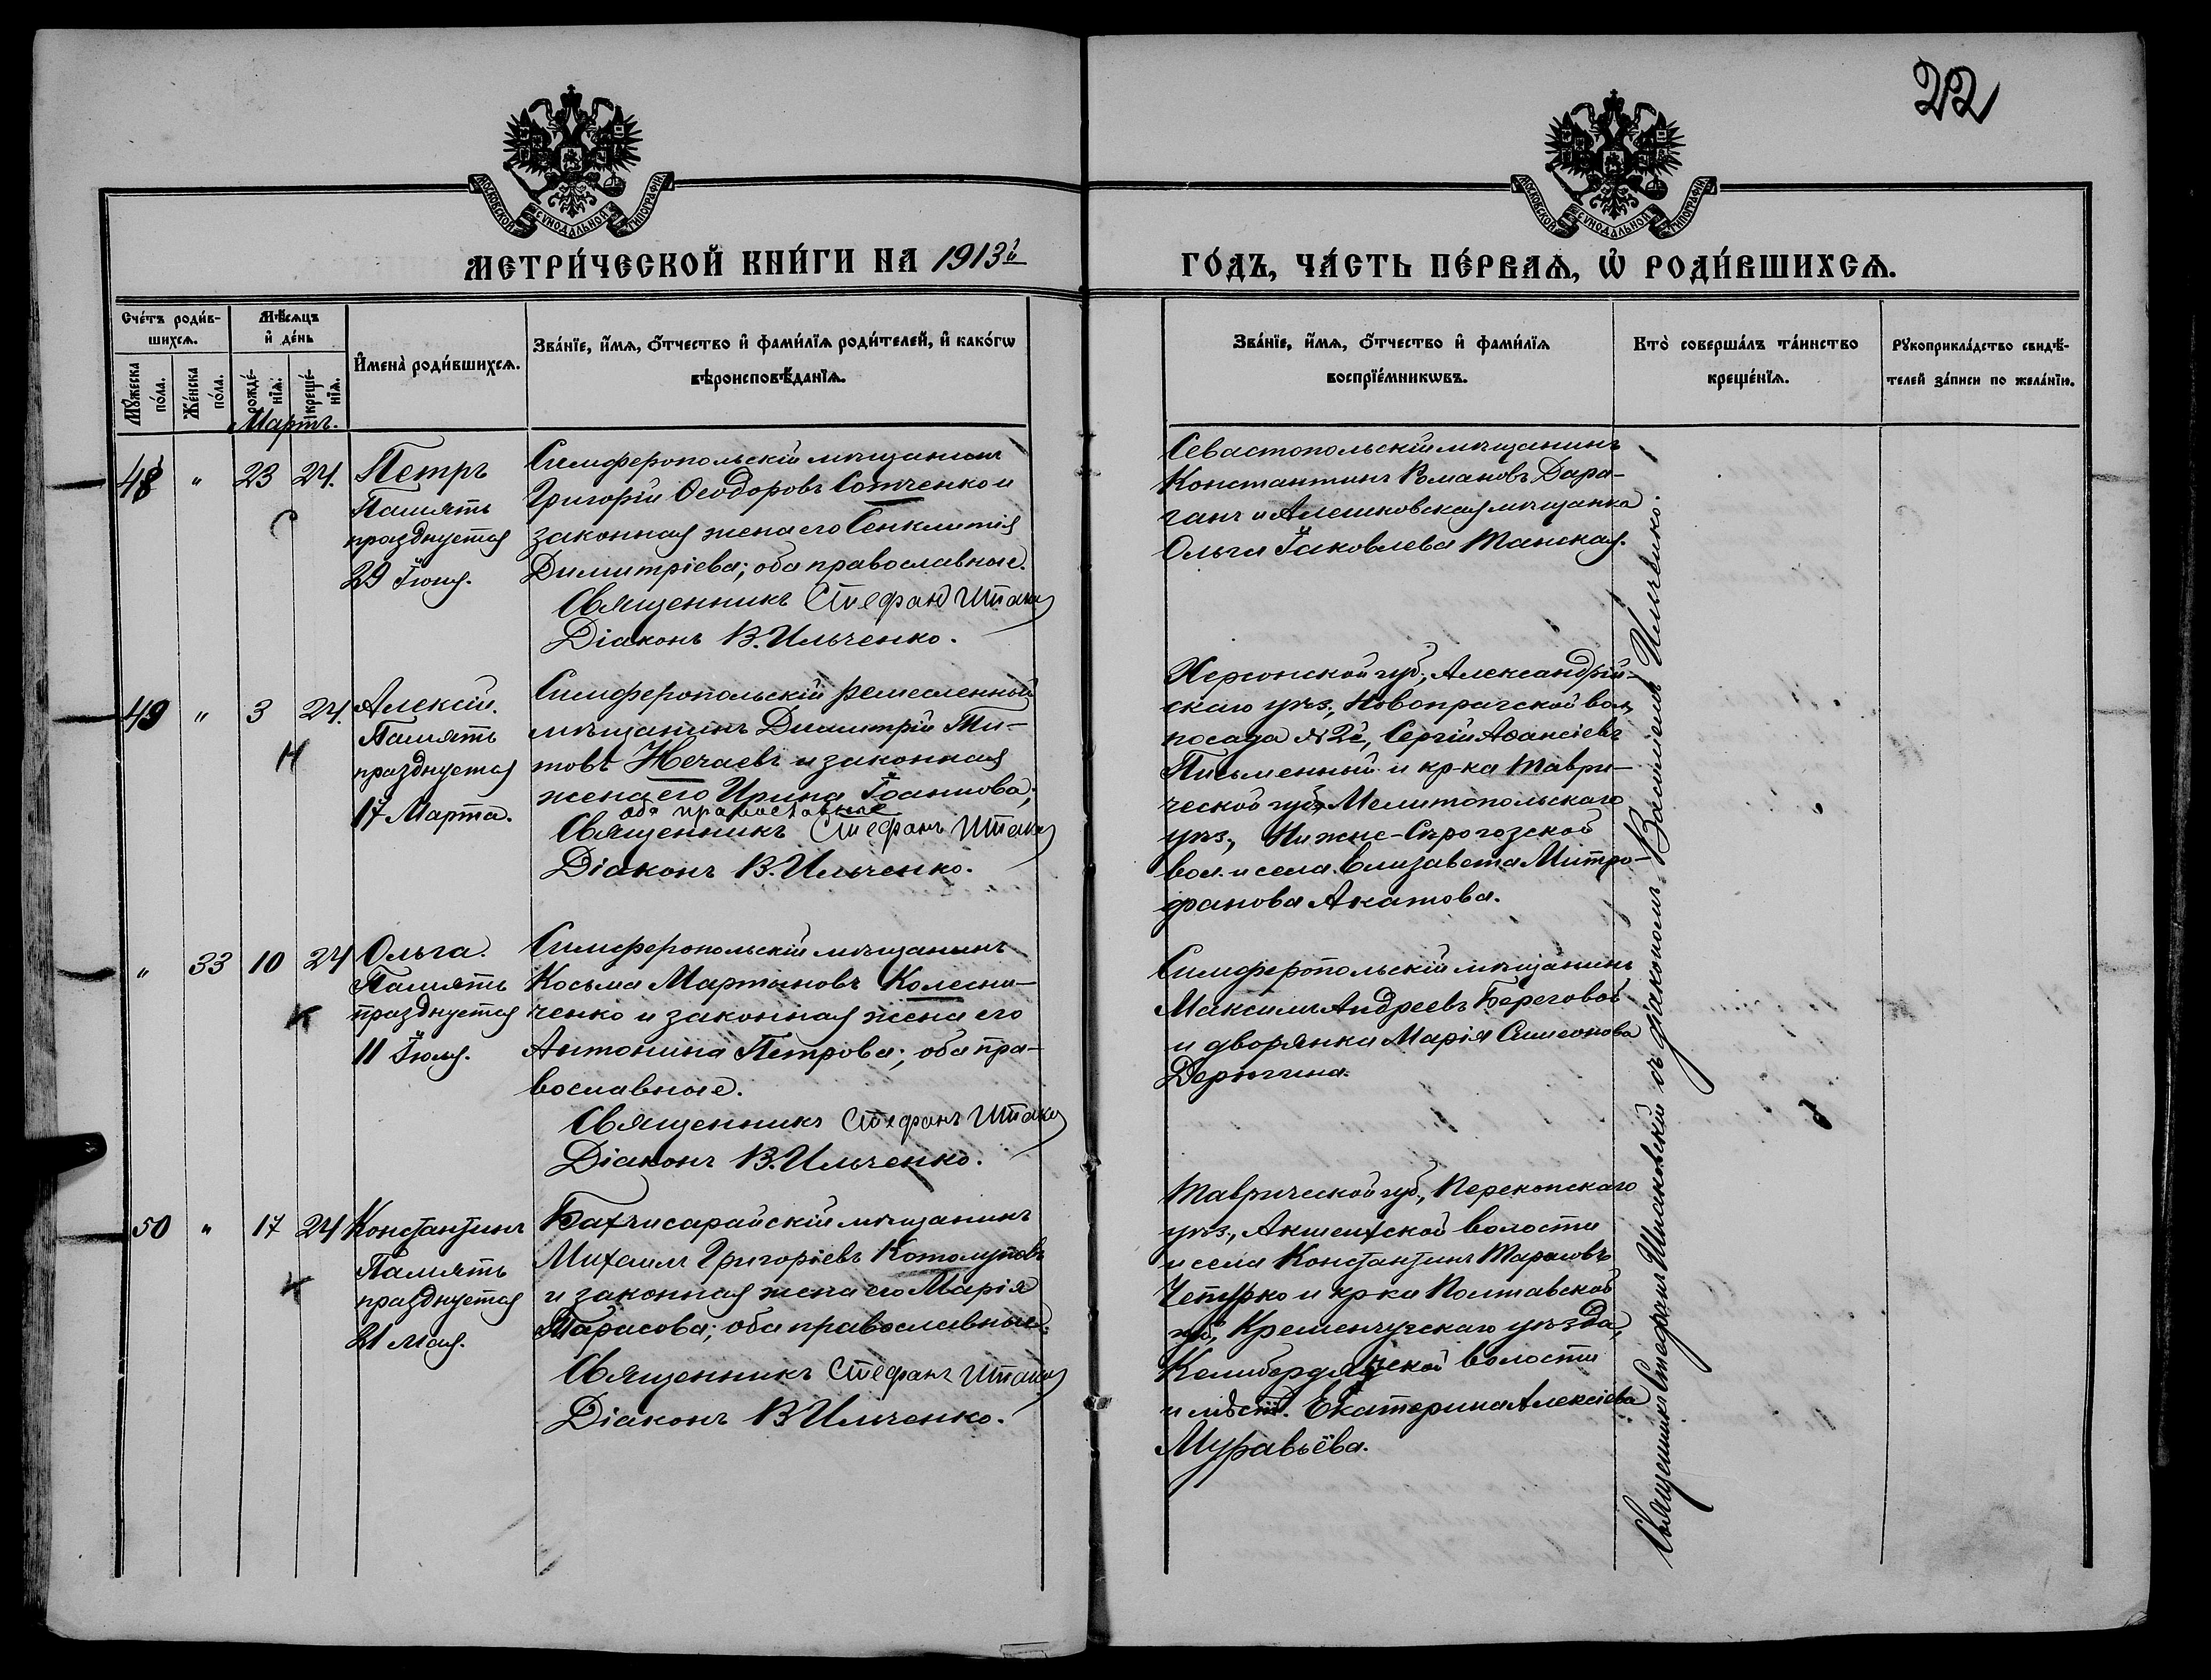 22
МОСКОВСКОЙ СУНОДАЛЬНОЙ ТИПОГРАФІИ
МОСКОВСКОЙ СУНОДАЛЬНОЙ ТИПОГРАФІИ
МЕТРИ́ЧЕСКОЙ КНИ́ГИ НА 1913й
ГО́ДЪ, ЧА́СТЬ ПЕ́РВАѦ, Ѡ҆ РОДИ́ВШИХСѦ.
Сче́тъ роди́в-
шихсѧ.
Мꙋ́жеска
по́ла.
Же́нска
по́ла.
Мѣ́сѧцъ
и҆ де́нь
рожде́-
нїѧ.
креще́-
нїѧ.
И҆мена̀ роди́вшихсѧ.
Зва́нїе, и҆́мѧ, ѻ҆́тчество и҆ фами́лїѧ роди́телей, и҆ како́гѡ
вѣроисповѣ́данїѧ.
Зва́нїе, и҆́мѧ, ѻ҆́тчество и҆ фами́лїѧ
воспрїе́мникѡвъ.
Кто̀ соверша́лъ та́инство
креще́нїѧ.
Рꙋкоприкла́дство свидѣ́-
телей за́писи по жела́нїю.
Мартъ.
48 " 23 24.
Петръ
Память
празднуется
29 Іюня.
Симферопольскій мѣщанинъ
Григорій Ѳеодоровъ Сотченко и
законная жена его Сенклитія
Димитріева; оба православные.
Священникъ Стефан Штак
Діаконъ В. Ильченко.
Севастопольскій мѣщанинъ
Константинъ Романовъ Дара-
ганъ и Алешковская мѣщанка
Ольга Іаковлева Танская.
49 " 3 24.
Алексій.
Память
празднуется
17 Марта.
Симферопольскій ремесленный
мѣщанинъ Димитрій Ти-
товъ Нечаевъ и законная
жена его Ирина Іоаннова;
оба православные
Священникъ Стефанъ Штак
Діаконъ В. Ильченко.
Херсонской губ., Александрій-
скаго уѣз., Новопрагской вол.,
посада №2й, Сергій Аѳансіевъ
Письменный и кр-ка Таври-
ческой губ., Мелитопольскаго
уѣз., Нижне-Сѣрогозской
вол. и села Елизавета Митро-
фанова Акатова.
" 33 10 24
Ольга.
Память
празднуется
11 Іюля.
Симферопольскій мѣщанинъ
Косьма Мартыновъ Колесни-
ченко и законная жена его
Антонина Петрова; оба пра-
вославные.
Священникъ Стефанъ Штак
Діаконъ В. Ильченко.
Симферопольскій мѣщанинъ
Максимъ Андреевъ Береговой
и дворянка Марія Симеонова
Дерюгина.
50 " 17 24
Константинъ
Память
празднуется
21 Мая.
Бахчисарайскій мѣщанинъ
Михаилъ Григоріевъ Котолуповъ
и законная жена его Марія
Тарасова; оба православные.
Священникъ Стефанъ Штак
Діаконъ В Ильченко.
Таврической губ., Перекопскаго
уѣз., Акшеихской волости
и села Константинъ Тарасовъ
Чепурко и кр-ка Полтавской
губ., Кременчугскаго уѣзда,
Келибердянской волости
и мѣст. Екатерина Алексіева
Муравьёва.
Священникъ Стефанъ съ діакономъ Василіемъ Ильченко.